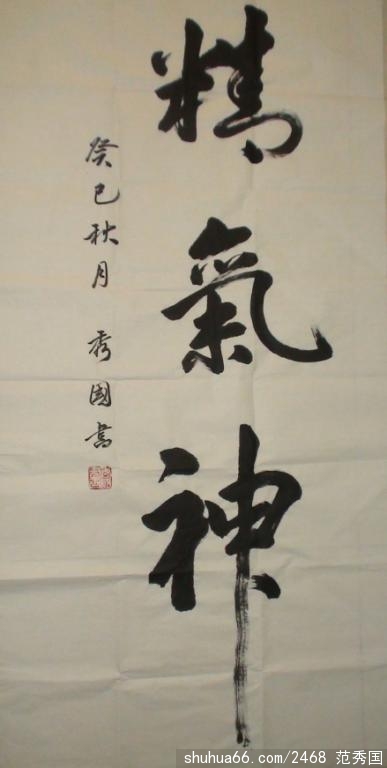 精氣神
癸巳秋月 秀國書
shuhua66.com/2468 范秀国